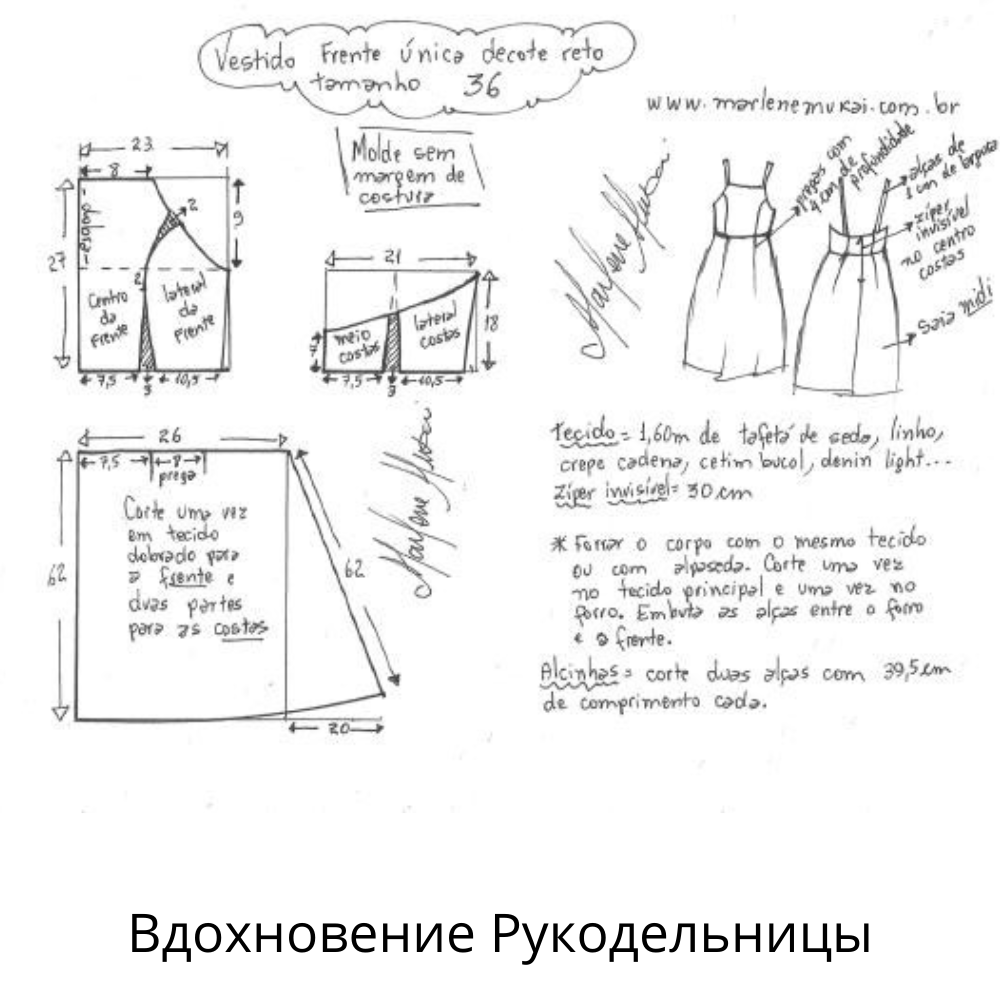 Vestido Frente única decote reto
tamanho 36
www.marlenemukai.com.br
Molde sem
margem de
costura
23
8
2
9
27
2
Centro
da
frente
lateral
da
Frente
7,5
3
10,5
21
18
7
meio
costas
lateral
costas
7,5
3
10,5
pregas com
4 cm de
profundidade
alças de
1 cm de largura
zíper
invisível
no centro
costas
Saia midi
Marlene Mukai
26
7,5
8
prega
Corte uma vez
em tecido
dobrado para
a frente e
duas partes
para as costas
62
62
20
Marlene Mukai
Tecido = 1,60m de tafetá de seda, linho,
crepe cadena, cetim bucol, denin light...
Zíper invisível = 30 cm
* Forrar o corpo com o mesmo tecido
ou com alpaseda. Corte uma vez
no tecido principal e uma vez no
forro. Embuta as alças entre o forro
e a frente.
Alcinhas = corte duas alças com 39,5cm
de comprimento cada.
Вдохновение Рукодельницы